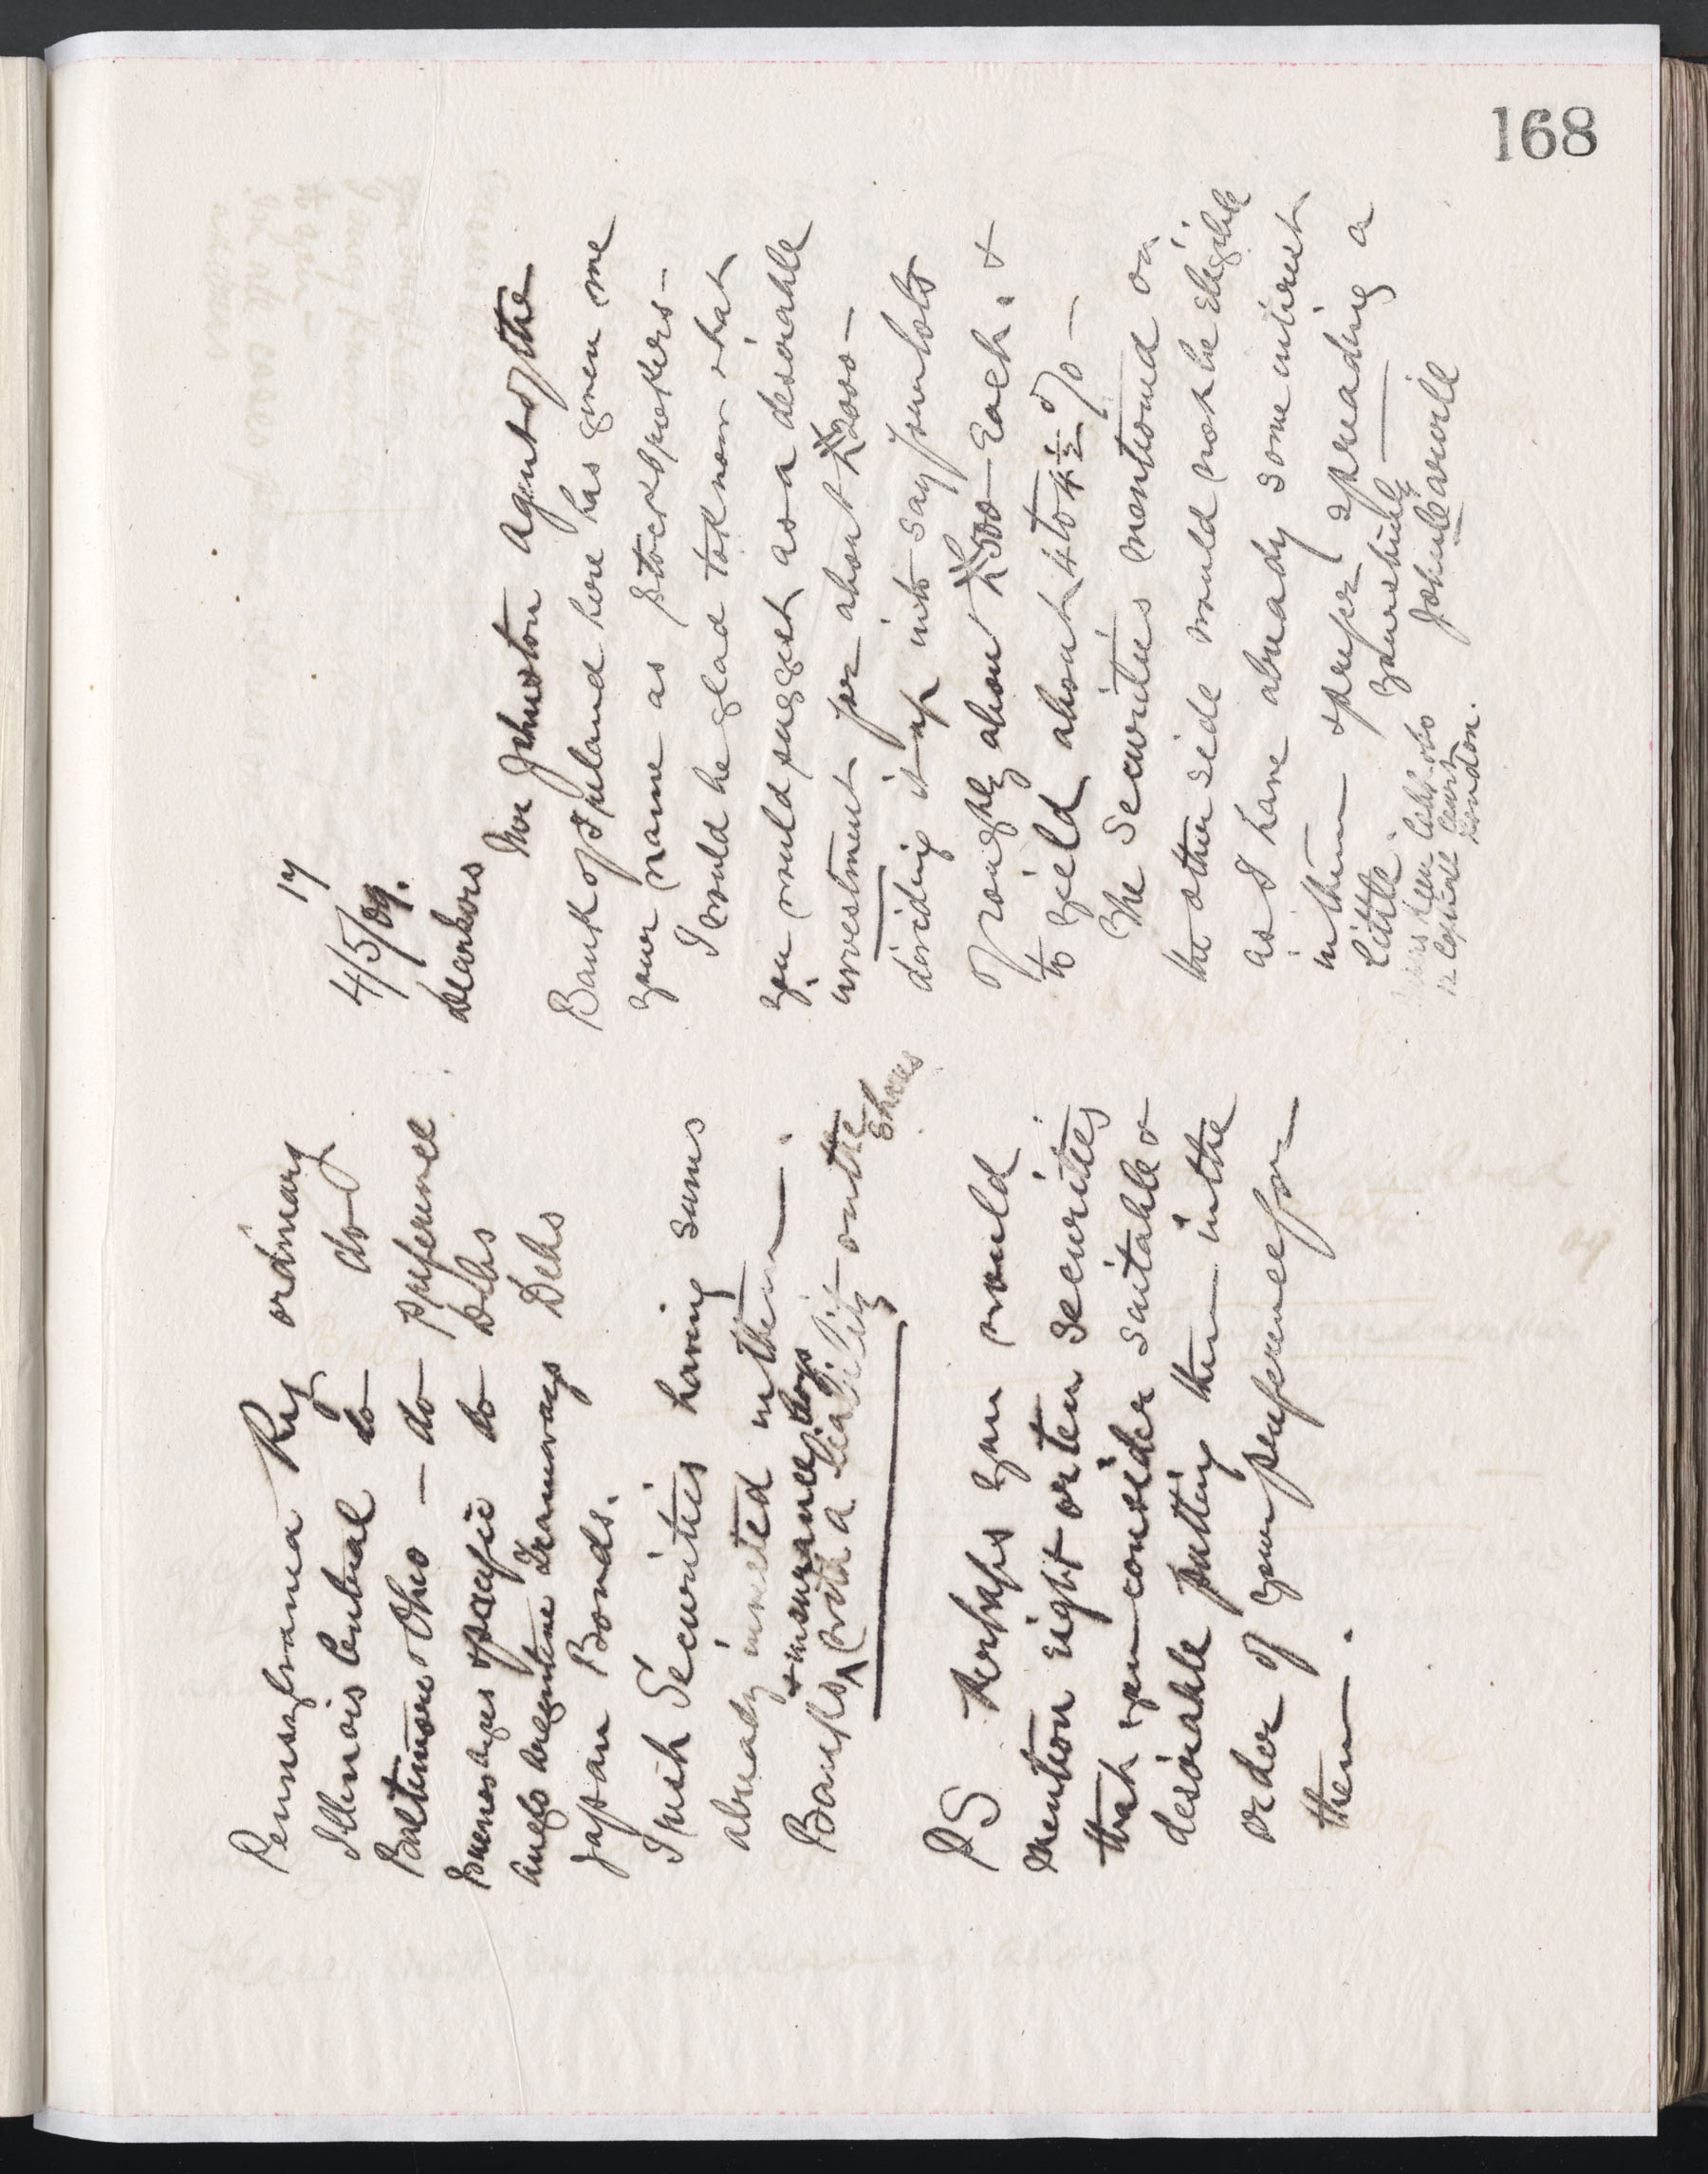 168
17
4/5/09.
Dear Sirs
Mr Johnston agent of the
Bank of Ireland here has given me
your name as Stockbrokers –
I would be glad to know what
you would suggest as a desirable
investment for about £2000 –
dividing it up into say four lots
of roughly about £500 – Each. &
to yield about 4 to 4½ % –
The Securities mentioned on
the other side would not be Eligible
as I have already some interest
in them & prefer spreading a
little.
yours truly
John Carvill
12 Copthall Court
London.
Pennsylvania Ry ordinary
Illinois Central do do
Baltimore & Ohio – do preference
Buenos Ayres & Pacific do Debs
Anglo Argentine Tramways Debs
Japan Bonds.
Irish Securities having sums
already invested in them – .
Banks & insurance Coys with a liability on the shares
PS Perhaps you would
mention Eight or ten Securities
that you consider suitable &
desirable putting them in the
order of your preference for
them .